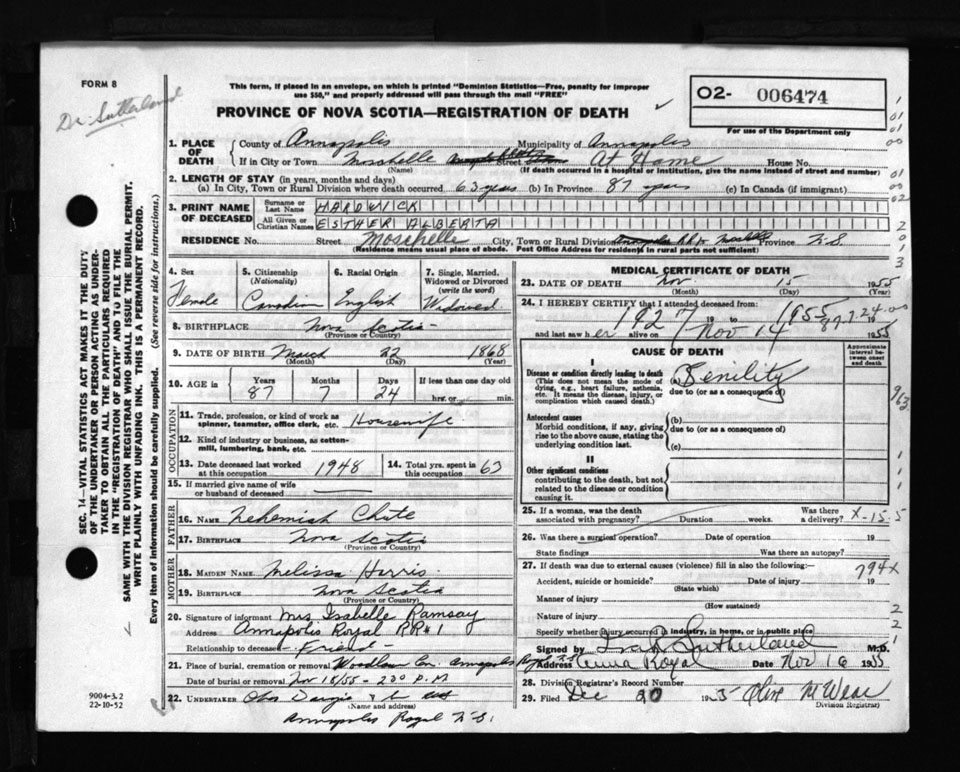 FORM 8
Dr. Sutherland
This form, if placed in an envelope, on which is printed "Dominion Statistics—Free, penalty for improper
use $50," and properly addressed will pass through the mail "FREE"
PROVINCE OF NOVA SCOTIA—REGISTRATION OF DEATH
O2- 006474
For use of the Department only
1. PLACE OF DEATH
County of Annapolis Municipality of Annapolis
If in City or Town Moschelle Street At Home House No.
(Name) (If death occurred in a hospital or institution, give the name instead of street and number)
2. LENGTH OF STAY (in years, months and days)
(a) In City, Town or Rural Division where death occurred 63 years (b) In Province 87 years (c) In Canada (if immigrant)
3. PRINT NAME OF DECEASED
Surname or Last Name HARDWICK
All Given or Christian Names ESTHER ALBERTA
RESIDENCE No. Street Moschelle City, Town or Rural Division Moschelle Province N.S.
(Residence means usual place of abode. Post Office Address for residents in rural parts not sufficient)
4. Sex Female
5. Citizenship (Nationality) Canadian
6. Racial Origin English
7. Single, Married, Widowed or Divorced (write the word) Widowed
8. BIRTHPLACE Nova Scotia
(Province or Country)
9. DATE OF BIRTH March 22 1868
(Month) (Day) (Year)
10. AGE in Years Months Days If less than one day old
87 7 24 hrs. or min.
OCCUPATION
11. Trade, profession, or kind of work as spinner, teamster, office clerk, etc. Housewife
12. Kind of industry or business, as cotton-mill, lumbering, bank, etc.
13. Date deceased last worked at this occupation 1948
14. Total yrs. spent in this occupation 63
15. If married give name of wife or husband of deceased
FATHER
16. NAME Nehemiah Chute
17. BIRTHPLACE Nova Scotia
(Province or Country)
MOTHER
18. MAIDEN NAME Melissa Harris
19. BIRTHPLACE Nova Scotia
(Province or Country)
20. Signature of informant Mrs Isabelle Ramsay
Address Annapolis Royal RR#1
Relationship to deceased Friend
21. Place of burial, cremation or removal Woodlawn Cem. Annapolis Royal N.S.
Date of burial or removal Nov 18/55 - 2 00 P.M
22. UNDERTAKER
(Name and address)
Annapolis Royal N.S.
MEDICAL CERTIFICATE OF DEATH
23. DATE OF DEATH Nov 15 1955
(Month) (Day) (Year)
24. I HEREBY CERTIFY that I attended deceased from:
1927 19 to 1955
and last saw her alive on Nov 14 1955
87-7-24-00
CAUSE OF DEATH
Approximate interval between onset and death
I
Disease or condition directly leading to death
(This does not mean the mode of dying, e.g., heart failure, asthenia, etc. It means the disease, injury, or complication which caused death.)
(a) Senility
due to (or as a consequence of)
Antecedent causes
Morbid conditions, if any, giving rise to the above cause, stating the underlying condition last.
(b)
due to (or as a consequence of)
(c)
II
Other significant conditions
contributing to the death, but not related to the disease or condition causing it.
25. If a woman, was the death associated with pregnancy? Duration weeks. Was there a delivery? X-15-5
26. Was there a surgical operation? Date of operation 19
State findings Was there an autopsy?
27. If death was due to external causes (violence) fill in also the following: 794X
Accident, suicide or homicide? Date of injury 19
(State which)
Manner of injury
(How sustained)
Nature of injury
Specify whether injury occurred in industry, in home, or in public place
Signed by Sutherland M.D.
Address Anna Royal Date Nov 16 1955
28. Division Registrar's Record Number
29. Filed Dec 20 1955
Division Registrar)
9004-3.2
22-10-52
SEC. 14—VITAL STATISTICS ACT MAKES IT THE DUTY
OF THE UNDERTAKER OR PERSON ACTING AS UNDER-
TAKER TO OBTAIN ALL THE PARTICULARS REQUIRED
IN THE "REGISTRATION OF DEATH" AND TO FILE THE
SAME WITH THE DIVISION REGISTRAR WHO SHALL ISSUE THE BURIAL PERMIT.
WRITE PLAINLY WITH UNFADING INK. THIS IS A PERMANENT RECORD.
Every item of information should be carefully supplied. (See reverse side for instructions.)